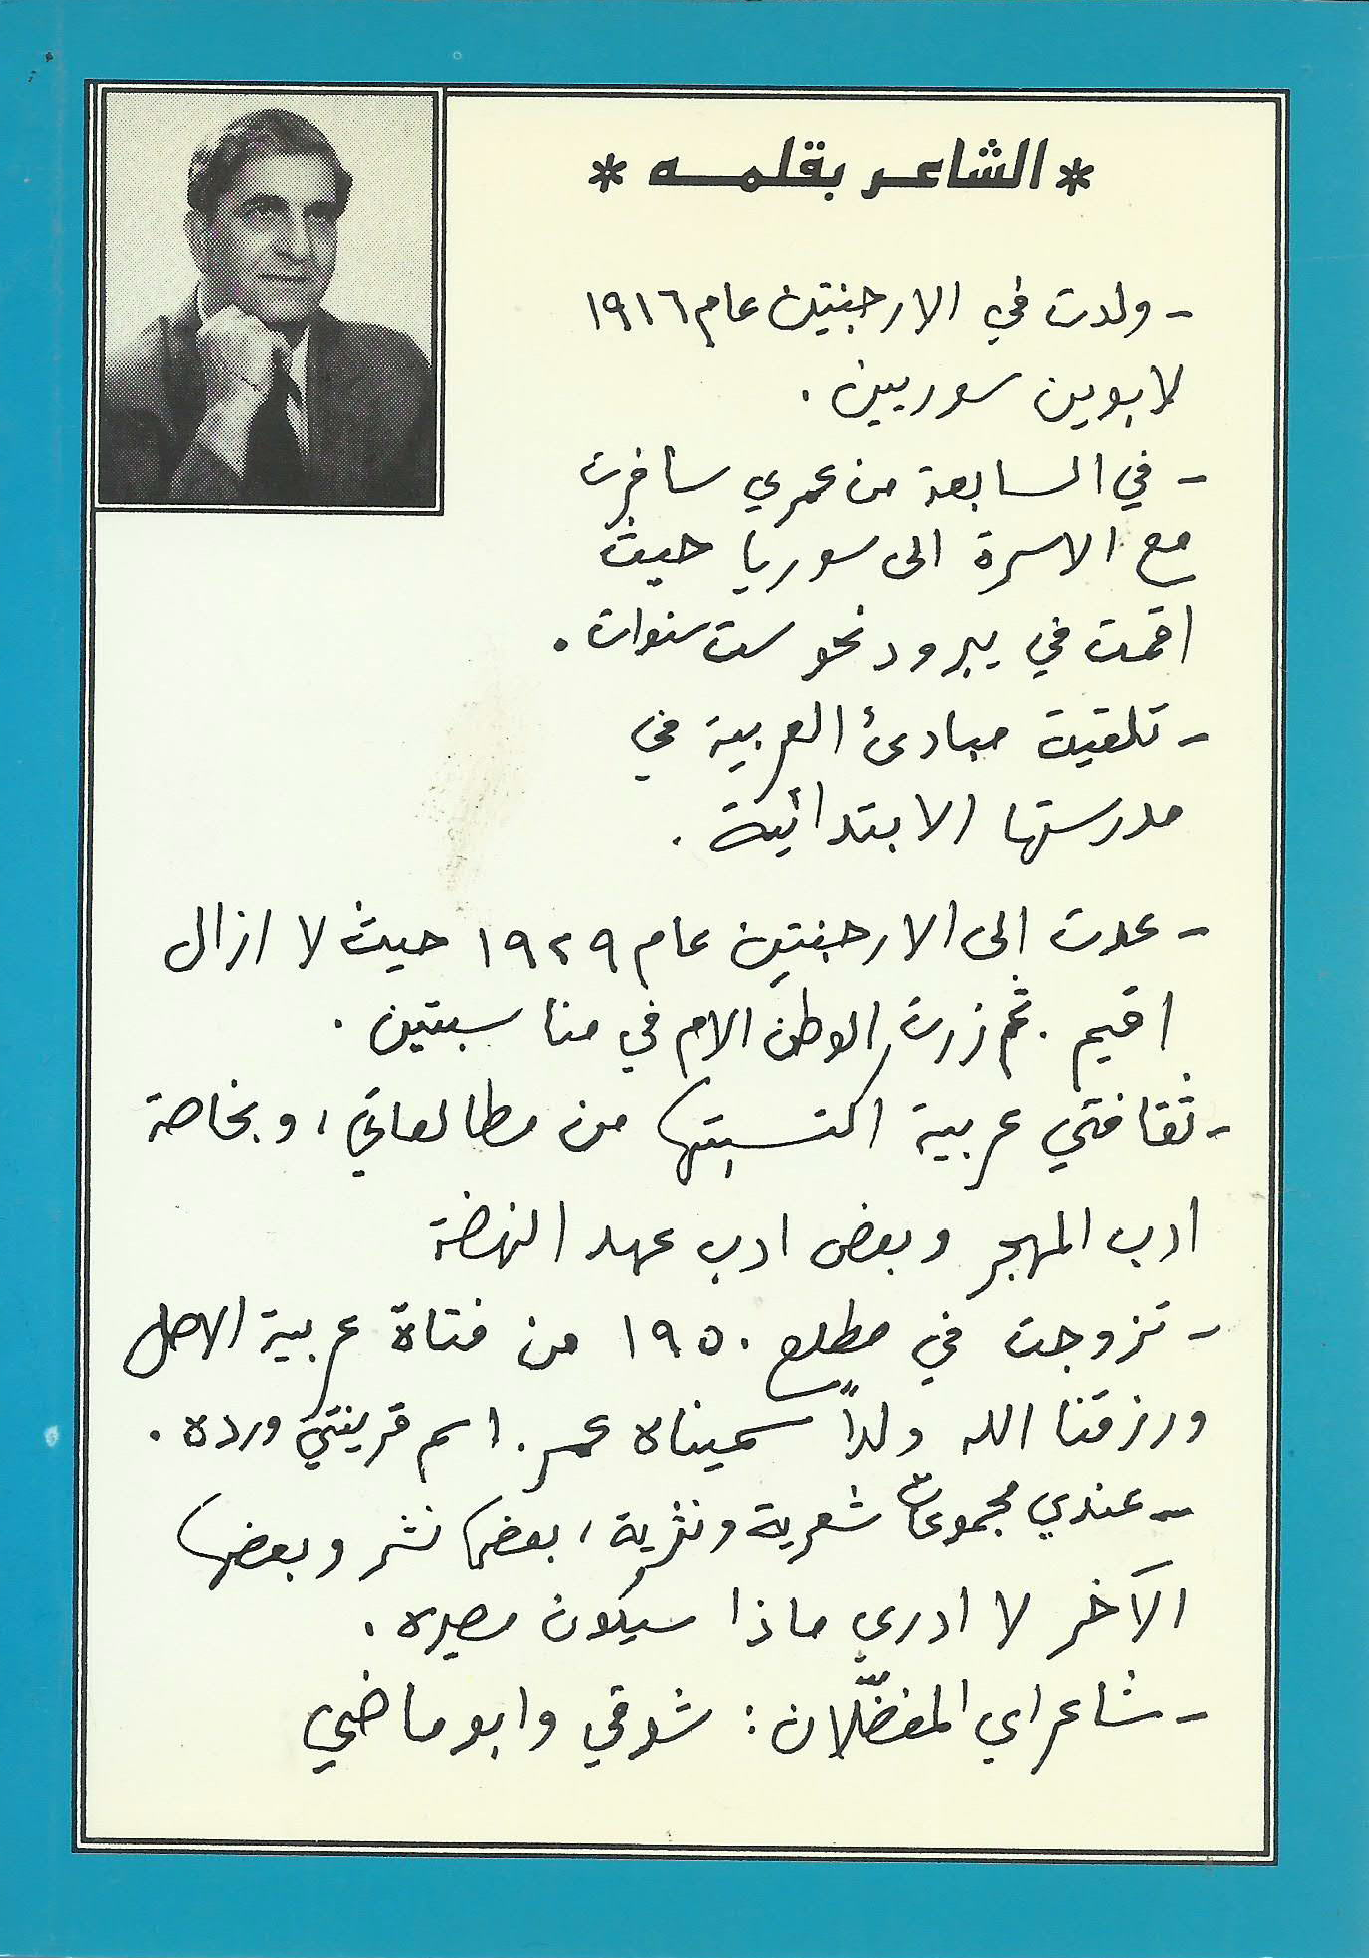 * الشاعر بقلمه *
- ولدت في الارجنتين عام ١٩١٦
لابوين سوريين .
- في السابعة من عمري سافرت
مع الاسرة الى سوريا حيث
اقمت في يبرود نحو ست سنوات .
- تلقيت مبادئ العربية في
مدرستها الابتدائية .
- عدت الى الارجنتين عام ١٩٢٩ حيث لا ازال
اقيم . ثم زرت الوطن الام في مناسبتين .
- ثقافتي عربية اكتسبتها من مطالعاتي ، وبخاصة
ادب المهجر وبعض ادب عهد النهضة
- تزوجت في مطلع ١٩٥٠ من فتاة عربية الاصل
ورزقنا الله ولداً سميناه عمر . اسم قرينتي ورده .
- عندي مجموعات شعرية ونثرية ، بعضها نشر وبعضها
الآخر لا ادري ماذا سيكون مصيره .
- شاعراي المفضّلان : شوقي وابو ماضي